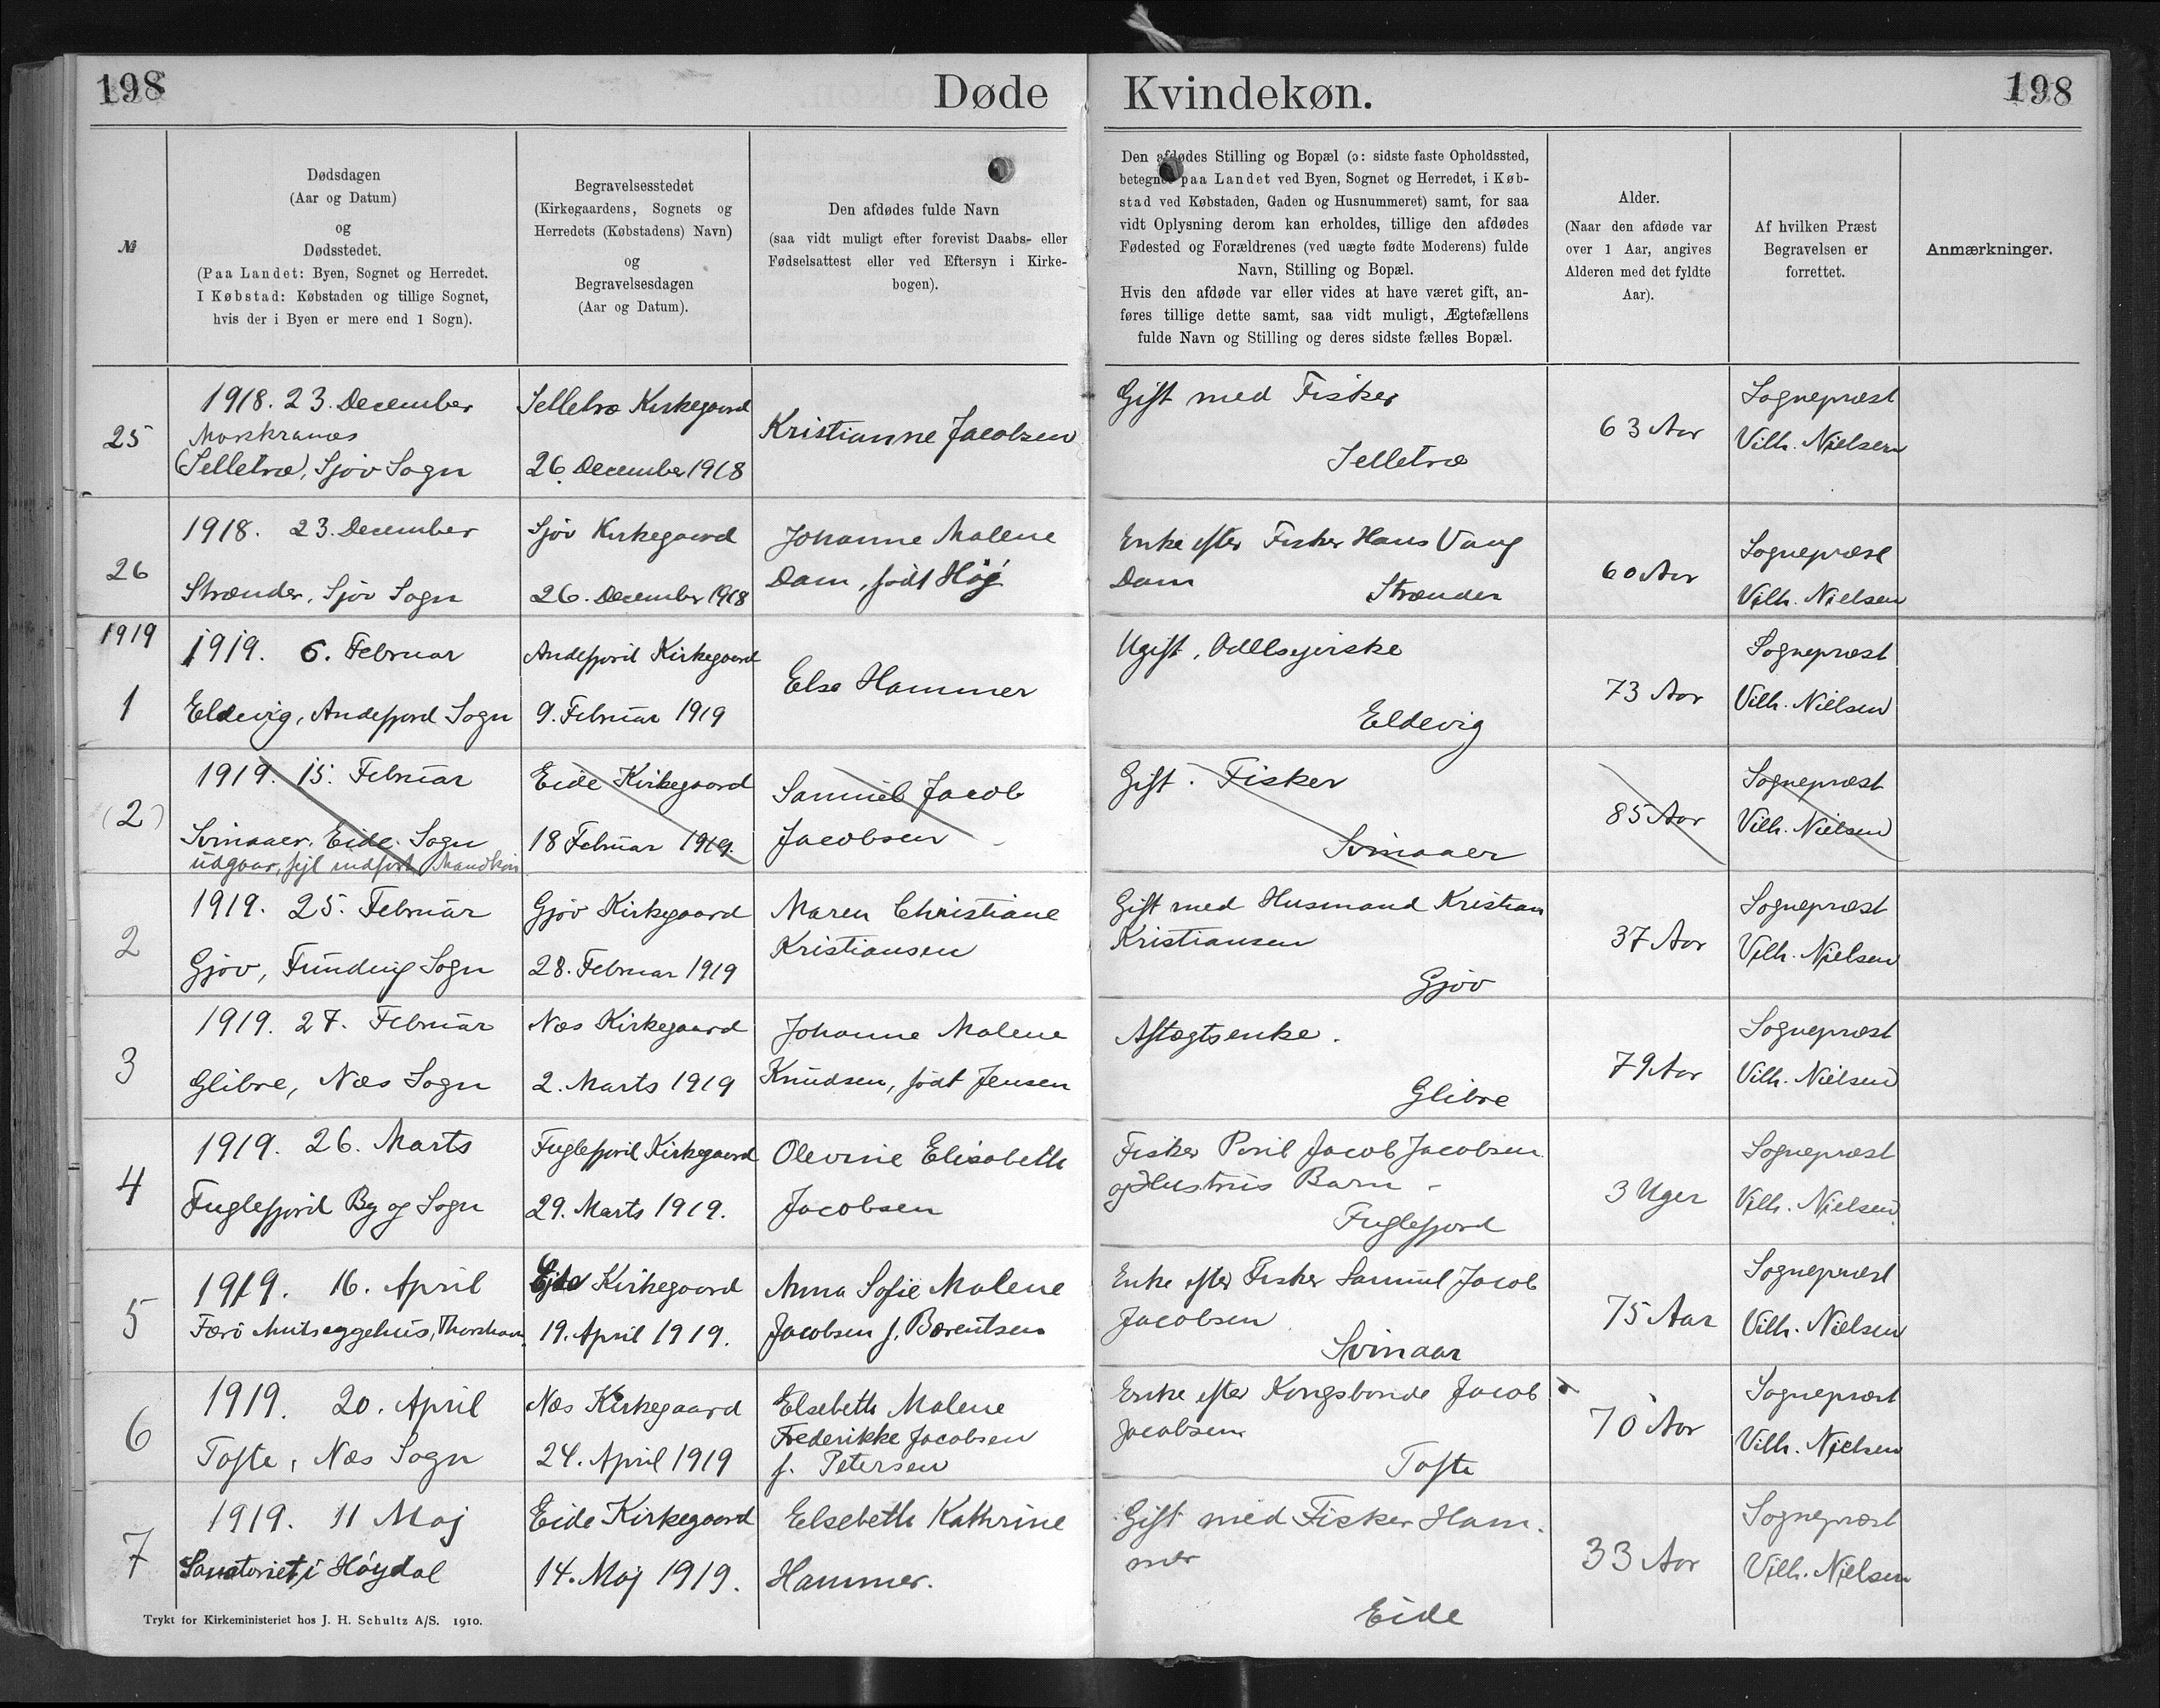 198
Døde
Kvindekøn.
198
№
Dødsdagen
(Aar og Datum)
og
Dødsstedet.
(Paa Landet: Byen, Sognet og Herredet.
I Købstad: Købstaden og tillige Sognet,
hvis der i Byen er mere end 1 Sogn).
Begravelsesstedet
(Kirkegaardens, Sognets og
Herredets (Købstadens) Navn)
og
Begravelsesdagen
(Aar og Datum).
Den afdødes fulde Navn
(saa vidt muligt efter forevist Daabs- eller
Fødselsattest eller ved Eftersyn i Kirke-
bogen).
Den afdødes Stilling og Bopæl (ɔ: sidste faste Opholdssted,
betegnet paa Landet ved Byen, Sognet og Herredet, i Køb-
stad ved Købstaden, Gaden og Husnummeret) samt, for saa
vidt Oplysning derom kan erholdes, tillige den afdødes
Fødested og Forældrenes (ved uægte fødte Moderens) fulde
Navn, Stilling og Bopæl.
Hvis den afdøde var eller vides at have været gift, an-
føres tillige dette samt, saa vidt muligt, Ægtefællens
fulde Navn og Stilling og deres sidste fælles Bopæl.
Alder.
(Naar den afdøde var
over 1 Aar, angives
Alderen med det fyldte
Aar).
Af hvilken Præst
Begravelsen er
forrettet.
Anmærkninger.
25
1918. 23. December
Morskranes
(Selletræ), Sjóv Sogn
Selletræ Kirkegaard
26. December 1918
Kristianne Jacobsen
Gift med Fisker
Selletræ
63 Aar
Sognepræst
Vilh. Nielsen
26
1918. 23. December
Strænder, Sjóv Sogn
Sjóv Kirkegaard
26. December 1918
Johanne Malene
Dam, født Høj
Enke efter Fisker Hans Vang
Dam
Strænder
60 Aar
Sognepræst
Vilh. Nielsen
1919
1
1919. 6. Februar
Eldevig, Andefjord Sogn
Andefjord Kirkegaard
9. Februar 1919
Else Hammer
Ugift, Odelsejerske
Eldevig
73 Aar
Sognepræst
Vilh. Nielsen
(2)
1919. 15. Februar
Svinaaer, Eide Sogn
udgaar, fejl indført Mandkøn
Eide Kirkegaard
18 Februar 1919.
Samuel Jacob
Jacobsen
Gift. Fisker
Svinaaer
85 Aar
Sognepræst
Vilh. Nielsen
2
1919. 25. Februar
Gjóv, Funding Sogn
Gjóv Kirkegaard
28. Februar 1919
Maren Christiane
Kristiansen
Gift med Husmand Kristian
Kristiansen
Gjóv
37 Aar
Sognepræst
Vilh. Nielsen
3
1919. 27. Februar
Glibre, Næs Sogn
Næs Kirkegaard
2. Marts 1919
Johanne Malene
Knudsen, født Jensen
Aftægtsenke.
Glibre
79 Aar
Sognepræst
Vilh. Nielsen
4
1919. 26. Marts
Fuglefjord By og Sogn
Fuglefjord Kirkegaard
29. Marts 1919.
Olevine Elisabeth
Jacobsen
Fisker Poul Jacob Jacobsen
og Hustrus Barn
Fuglefjord
3 Uger
Sognepræst
Vilh. Nielsen
5
1919. 16. April
Færö Amtssygehus, Thorshavn
Eide Kirkegaard
19. April 1919.
Anna Sofie Malene
Jacobsen f. Berentsen
Enke efter Fisker Samuel Jacob
Jacobsen
Svinaar
75 Aar
Sognepræst
Vilh. Nielsen
6
1919. 20. April
Tofte, Næs Sogn
Næs Kirkegaard
24. April 1919
Elsebeth Malene
Frederikke Jacobsen
f. Petersen
Enke efter Kongsbonde Jacob
Jacobsen
Tofte
70 Aar
Sognepræst
Vilh. Nielsen
7
1919. 11 Maj
Sanatoriet i Höydal
Eide Kirkegaard
14. Maj 1919.
Elsebeth Kathrine
Hammer.
Gift med Fisker Ham-
mer
Eide
33 Aar
Sognepræst
Vilh. Nielsen
Trykt for Kirkeministeriet hos J. H. Schultz A/S. 1910.